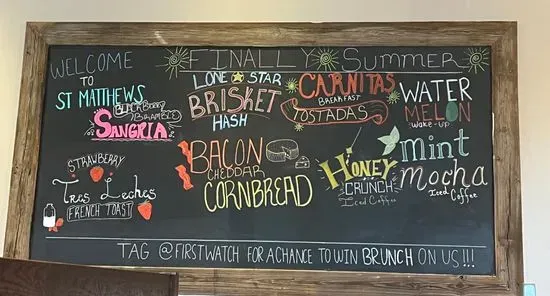 WELCOME
TO
ST MATTHEWS
FINALLY Summer
BLACKBERRY
BRAMBLE
SANGRIA
LONE STAR
BRISKET
HASH
CARNITAS
BREAKFAST
TOSTADAS
WATER
MELON
WAKE-UP
STRAWBERRY
Tres Leches
FRENCH TOAST
BACON
CHEDDAR
CORNBREAD
HONEY
CRUNCH
Iced Coffee
Mint
Mocha
Iced Coffee
TAG @FIRSTWATCH FOR A CHANCE TO WIN BRUNCH ON US!!!